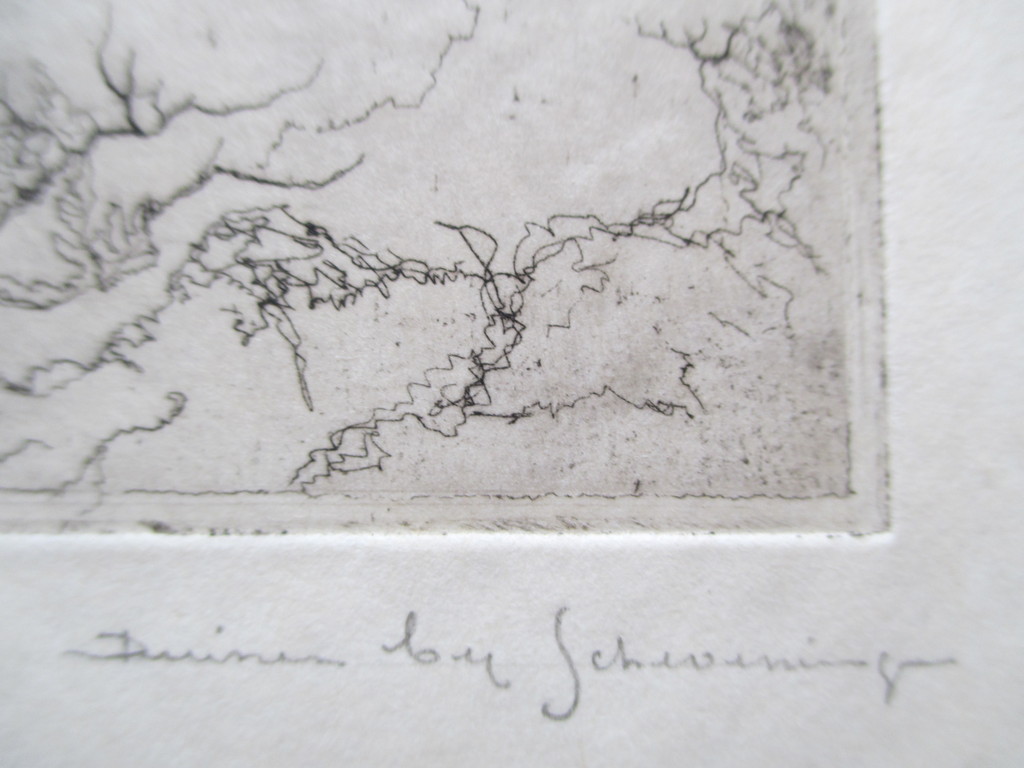 Duinen by Schevening